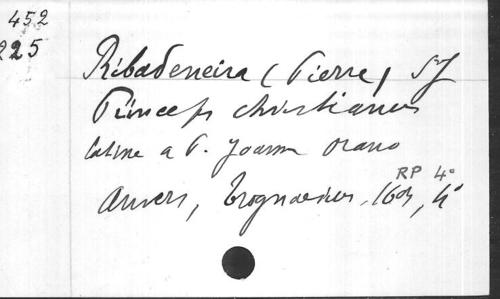 452
225
Ribadeneira (Pierre) SJ
Princeps christianus
latine a P. Joanne Orano
RP 4°
Anvers, Trognaesius, 4°